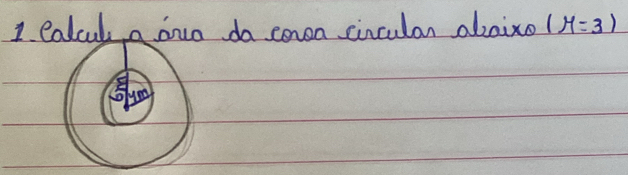 1. Calcule a área da coroa circular abaixo (π=3)
6m
4m